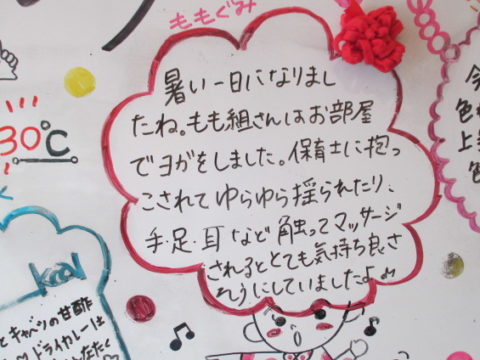 ももぐみ
暑い一日になりまし
たね。もも組さんはお部屋
でヨガをしました。保育士に抱っ
こされてゆらゆら揺られたり、
手・足・耳など触ってマッサージ
されるととても気持ち良さ
そうにしていました♪
30℃
キャベツの甘酢
ドライカレーは
今
色
上